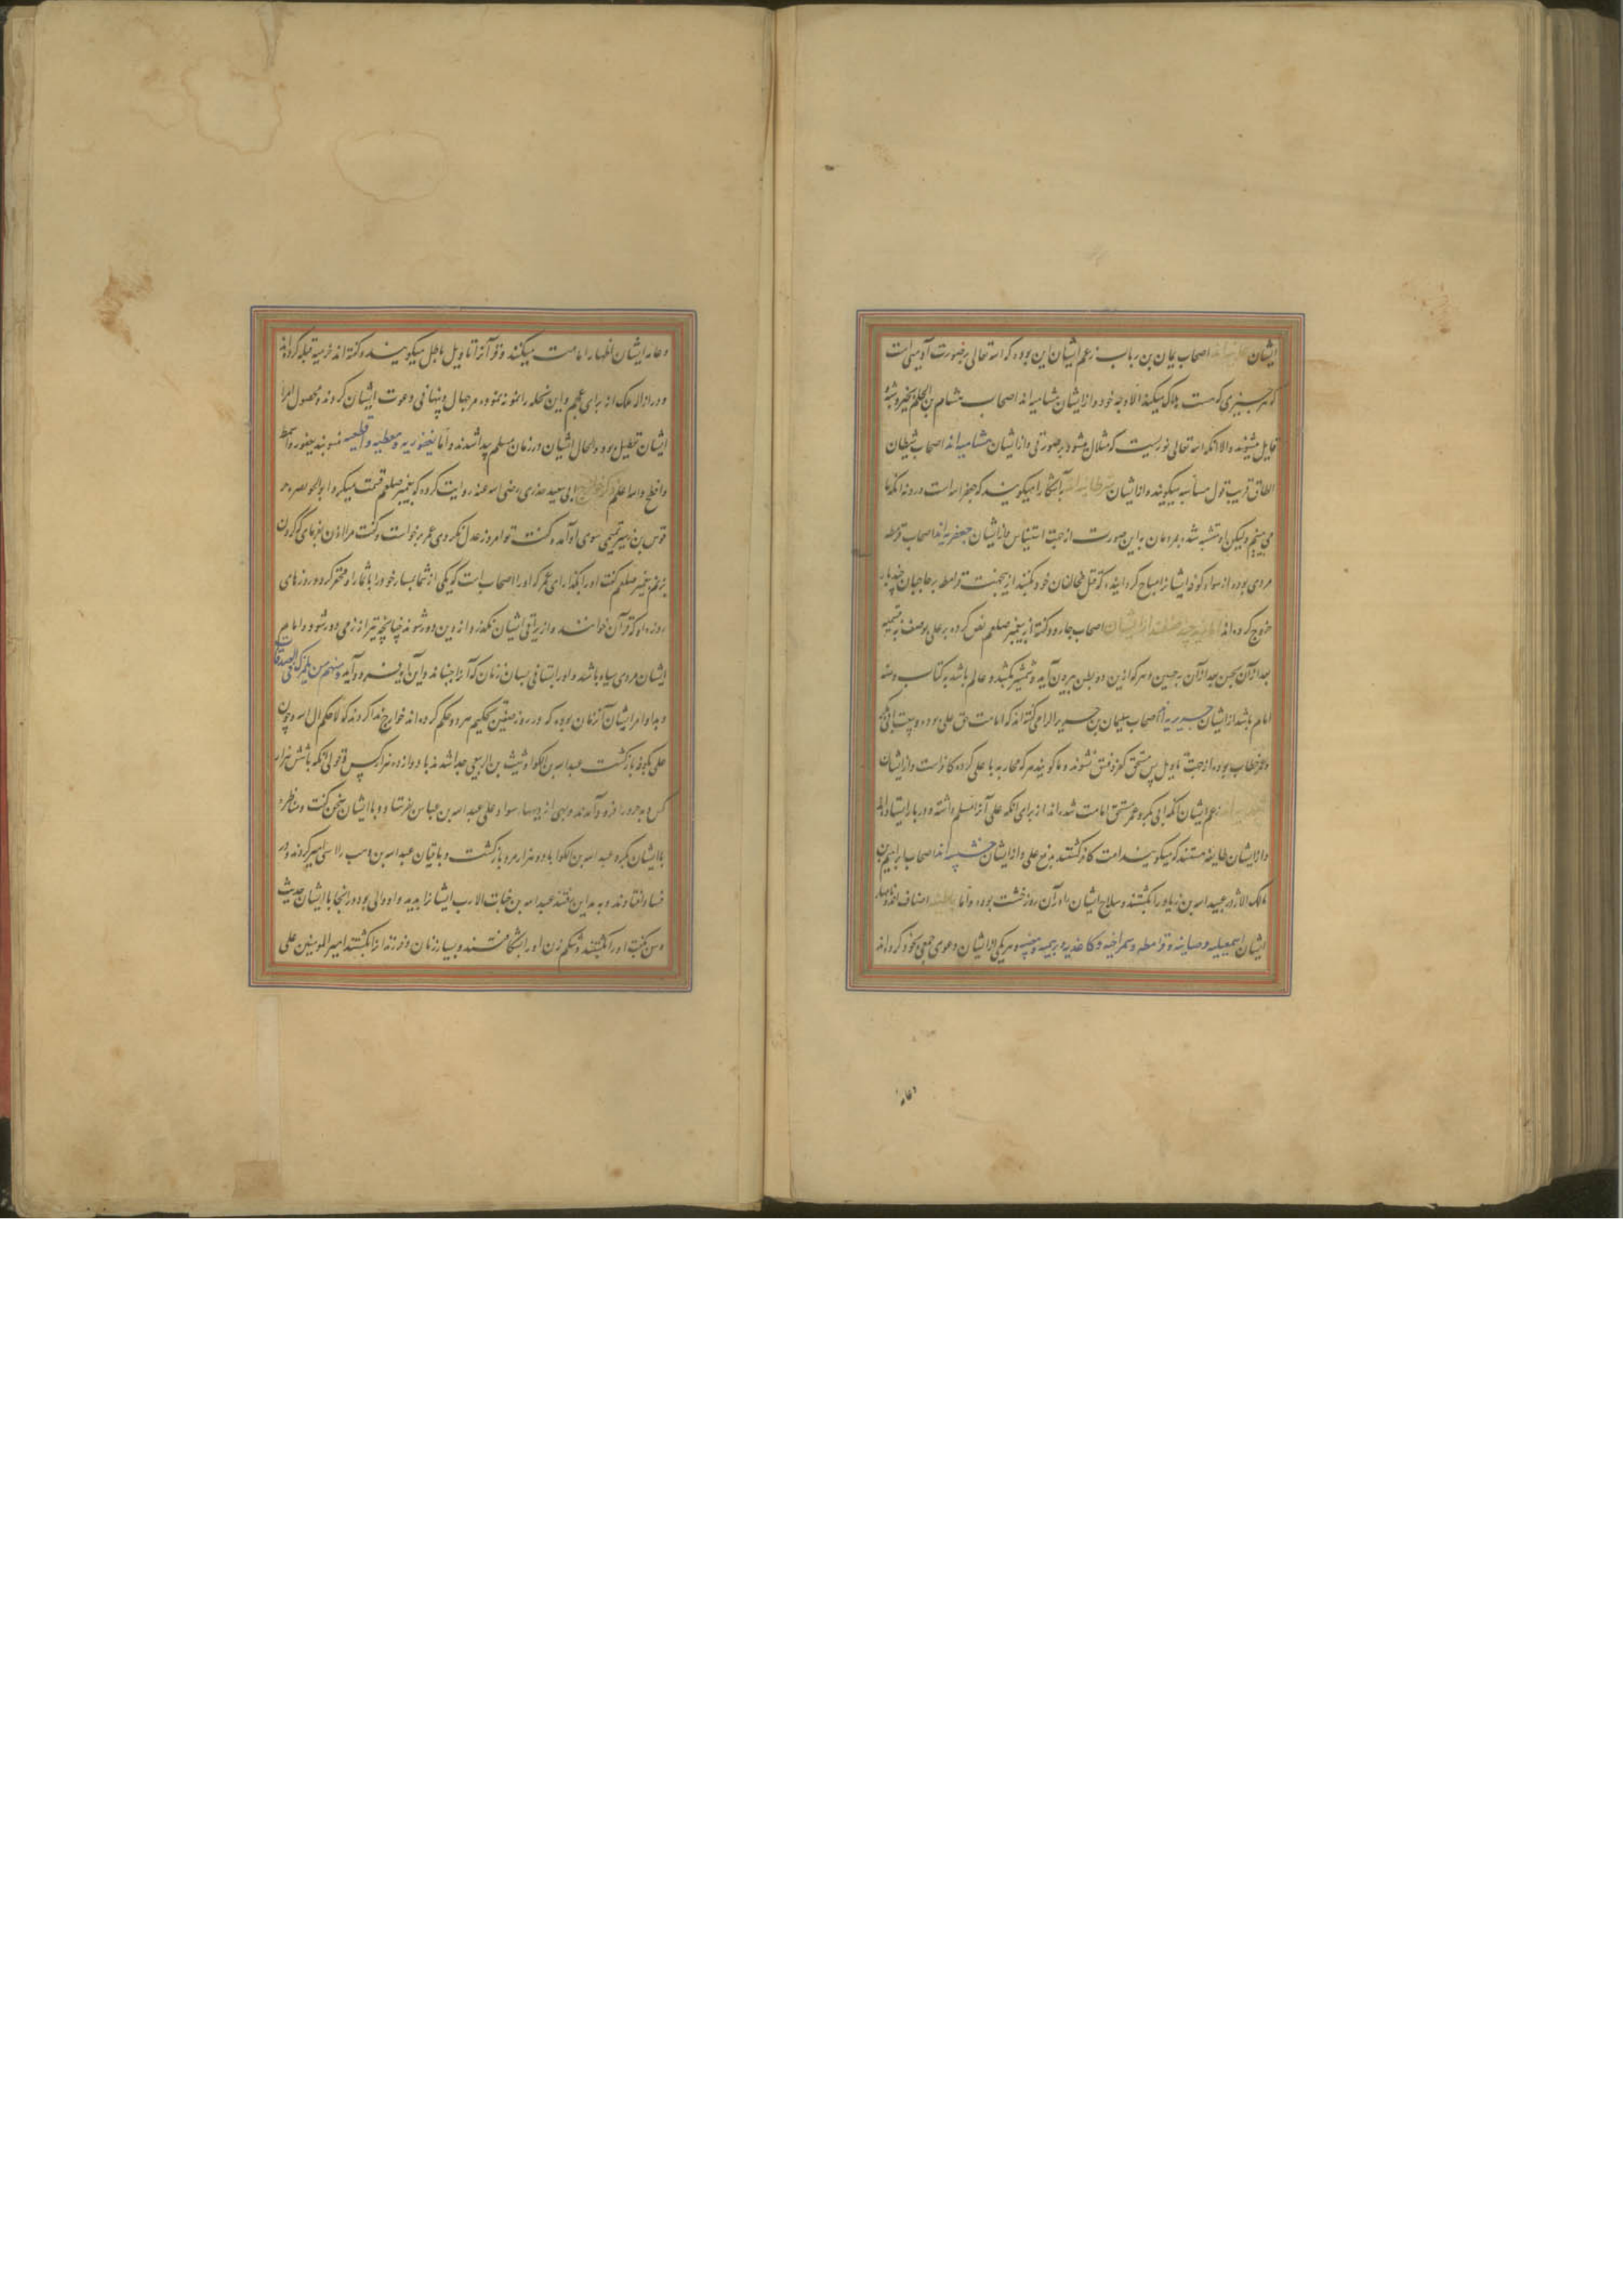 ایشان اصحاب یمان بن رباب زعم ایشان این بوده که الله تعالی بر صورت آدمی است
که هر چیزی که هست هلاک میکند الا وجه خود و از ایشان هشامیه اند اصحاب هشام بن الحکم بغیر و شبه
قایل میشوند والا آنکه الله تعالی نوریست که مثلا میشود بر صورتی و از ایشان هشامیه اند اصحاب شیطان
الطاق قریب قول مسأسه میگویند و از ایشان آشکارا میگویند که جعفر الله است و درو نه آنکه ما
می بینیم ولیکن او متشبه شده بمردمان به این صورت از جهت استیناس و از ایشان جعفریه اند اصحاب قرمطه
مردی بوده از سواد کوفه ایشانرا مباح گردانیده که قتل مخالفان خود بکنند ازینجهت قرامطه بر حاجیان چند بار
خروج کرده اند از ایشان اصحاب جارود گفته از پیغمبر صلعم نص کرده بر علی بوصف نه بتسمیه
بعد از آن بحسن بعد از آن بحسین و هر که ازین دو بطن بیرون آید و شمشیر بکشد و عالم باشد به کتاب و سنه
امام باشد از ایشان جریریه اند اصحاب سلیمان بن جریر الرامی گفته اند که امامت حق علی بوده و بیعت ابی بکر
و عمر خطاب بوده از جهت تاویل پس مستحق کفر و فسق نشوند و ما گویند هر که محاربه با علی کرده کافر است و از ایشان
زعم ایشان آنکه ابی بکر و عمر مستحق امامت شده اند از برای آنکه علی آنرا مسلم داشته و در بار ایستاده اند
و از ایشان طایفه هستند که میگویند امت کافر گشتند بدفع علی و از ایشان خشبیه اند اصحاب ابراهیم بن
مالک الاژدر عبید الله بن زیاد را بکشتند و سلاح ایشان در آن روز خشت بوده و اما باطنیه اصناف اند و بهار
ایشان اسمعیلیه و صباینه و قرامطه و سمراخیه و کاغذیه و بریمیه و مبیضه و هر یکی از ایشان دعوی جمعی بخود کرده اند
وعامه
وعامه ایشان اظهار امامت میکنند و قرآنرا تاویل باطل میگویند و گفته اند خرمیه قبله کرده اند
و درازالا ملک از برای عجم و این نحله را نمونه بنموده مرجبال و پنهانی دعوت ایشان کردند و محصول امرا
ایشان تعطیل بود و الحال ایشان در زمان مسلم پیدا شدند و اما یعفوریه و معطیه و اقطعیه منسوبند بیعفور و اسمط
و افطح والله اعلم ذکر خوارج ابی سعید خدری رضی الله عنه روایت کرده که پیغمبر صلعم قسمت میکرد و ابو الخویصره حر
قوس بن زهیر تمیمی سوی او آمد و گفت تو امروز عدل نکردی عمر برخواست و گفت مرا اذن بفرمای که گردن
بزنم پیغمبر صلعم گفت او را بگذار ای عمر که او را اصحاب است که یکی از شما بسیار خود را با نماز او محقر کرد و روزهای
روزه او که قرآن خوانند و از پرانی ایشان نگذرد و از دین دور شوند چنانچه تیر از رمی دور شود و امام
ایشان مردی سیاه باشد و او را پستانی بسان زنان که آنرا جنباند و این آیه فرود آید ومنهم من یلمزک فی الصدقات
و بداء امر ایشان آنزمان بوده که در روز صفین تحکیم هر دو حکم کرده اند خوارج ندا کردند که لا حکم الا لله و چون
علی بکوفه بازگشت عبد الله بن الکوا و شیث بن الربعی جدا شدند با دوازده هزار کس و قولی آنکه با شش هزار
کس و به حرورا فرود آمدند و بهی از دیهها سواد علی عبد الله بن عباس فرستاد و با ایشان سخن گفت و مناظره
باایشان بکرد عبد الله بن الکوا با دو هزار مرد بازگشت و باقیان عبد الله بن وهب راسی امیر کردند و در
فساد افتادند و به مداین رفتند عبد الله بن خباب الارت ایشانرا بدید و او والی بود در آنجا با ایشان حدیث
وسن گفت او را بکشتند و شکم زن او را بشکافتند و بسیار زنان و فرزندانرا بکشتند امیر المومنین علی